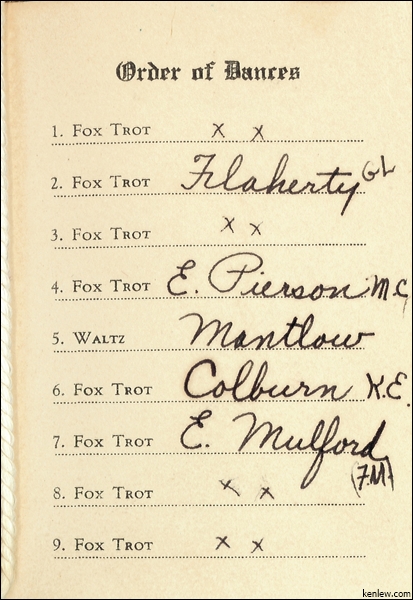 Order of Dances
1. Fox Trot x x
2. Fox Trot Flaherty GL
3. Fox Trot x x
4. Fox Trot E. Pierson M.C
5. Waltz Mantlow
6. Fox Trot Colburn K.E.
7. Fox Trot E. Mulford
(F.M)
8. Fox Trot x x
9. Fox Trot x x
kenlew.com